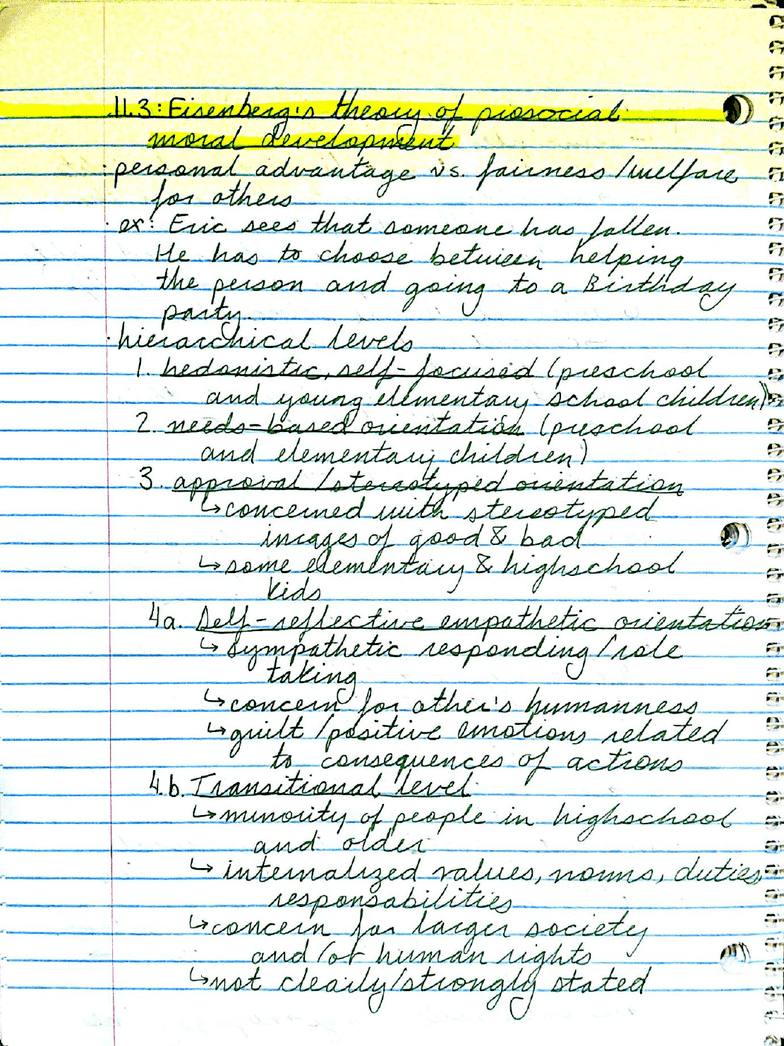 11.3: Eisenberg's theory of prosocial
moral development
· personal advantage vs. fairness/welfare
for others
· ex: Eric sees that someone has fallen.
He has to choose between helping
the person and going to a Birthday
party.
· hierarchical levels
1. hedonistic, self-focused (preschool
and young elementary school children)
2. needs-based orientation (preschool
and elementary children)
3. approval/stereotyped orientation
↳ concerned with stereotyped
images of good & bad
↳ some elementary & highschool
kids
4a. Self-reflective empathetic orientation
↳ sympathetic responding/role
taking
↳ concern for other's humanness
↳ guilt/positive emotions related
to consequences of actions
4.b. Transitional level
↳ minority of people in highschool
and older
↳ internalized values, norms, duties,
responsabilities
↳ concern for larger society
and/or human rights
↳ not clearly/strongly stated